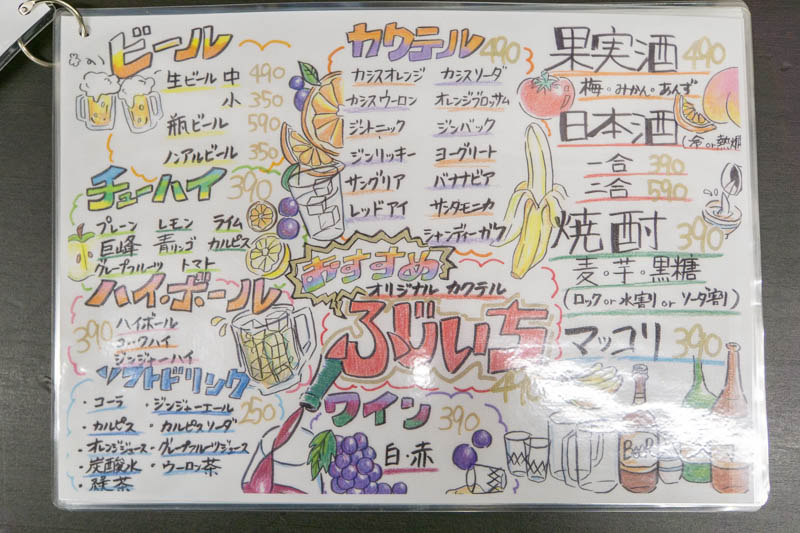 ビール
生ビール 中 490
小 350
瓶ビール 590
ノンアルビール 350
チューハイ 390
プレーン レモン ライム
巨峰 青リンゴ カルピス
グレープフルーツ トマト
ハイ・ボール
390
ハイボール
コークハイ
ジンジャーハイ
ソフトドリンク
250
・コーラ ・ジンジャーエール
・カルピス ・カルピスソーダ
・オレンジジュース ・グレープフルーツジュース
・炭酸水 ・ウーロン茶
・緑茶
カクテル 490
カシスオレンジ カシスソーダ
カシスウーロン オレンジブロッサム
ジントニック ジンバック
ジンリッキー ヨーグリート
サングリア バナナビア
レッドアイ サンタモニカ
シャンディーガフ
おすすめ
オリジナル カクテル
ふじいち
490
ワイン 390
白・赤
果実酒 490
梅・みかん・あんず
日本酒
(冷 or 熱燗
一合 390
二合 590
焼酎 390
麦・芋・黒糖
(ロック or 水割り or ソーダ割り)
マッコリ 390
BEER